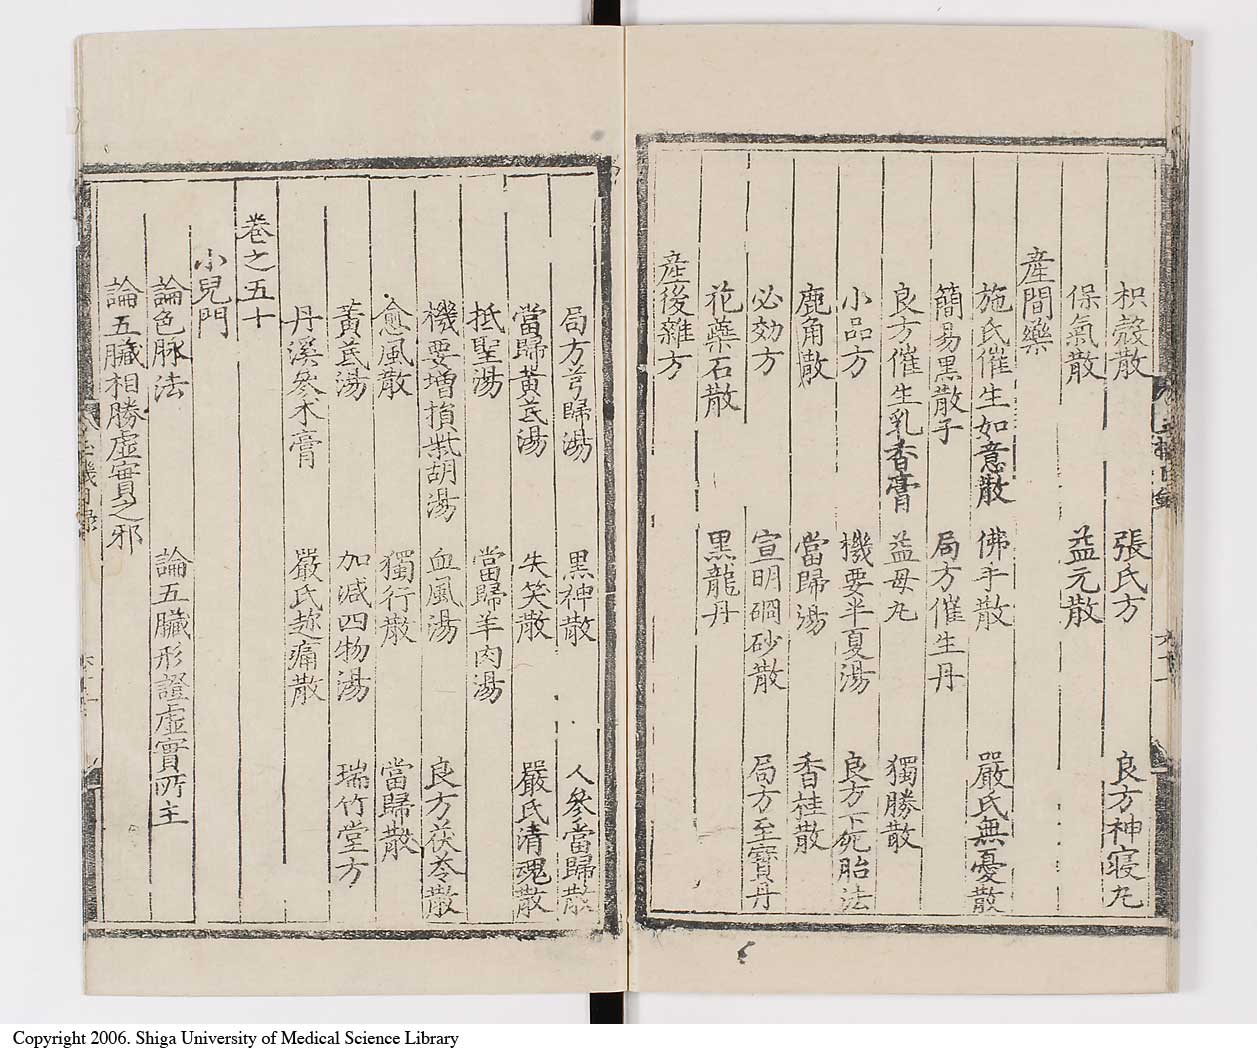 枳殼散　張氏方　良方神寝丸
保氣散　益元散
産間藥
施氏催生如意散　佛手散　嚴氏無憂散
簡易黑散子　局方催生丹
良方催生乳香膏　益母丸　獨勝散
小品方　機要半夏湯　良方下死胎法
鹿角散　當歸湯　香桂散
必効方　宣明硇砂散　局方至寶丹
花藥石散　黑龍丹
産後雜方
局方芎歸湯　黑神散　人參當歸散
當歸黃芪湯　失笑散　嚴氏清魂散
抵聖湯　當歸羊肉湯
機要增損柴胡湯　血風湯　良方茯苓散
愈風散　獨行散　當歸散
黃芪湯　加减四物湯　瑞竹堂方
丹溪參术膏　嚴氏趂痛散
卷之五十
小兒門
論色脉法　論五臟形證虛實所主
論五臟相勝虛實之邪
Copyright 2006. Shiga University of Medical Science Library